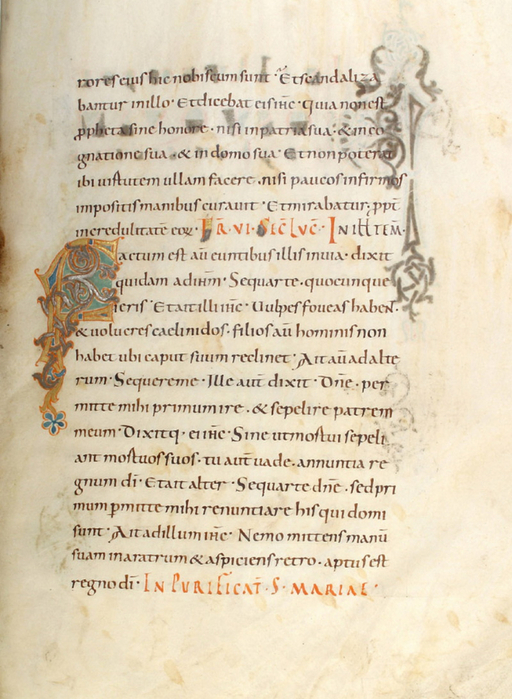 rores eius hic nobiscum sunt · Et scandaliza
bantur in illo · Et dicebat eis ihc · quia non est
ppheta sine honore · nisi in patria sua · & in co
gnatione sua · & in domo sua · Et non poterat
ibi uirtutem ullam facere · nisi paucos infirmos
impositis manibus curauit · Et mirabatur ppt
incredulitatem eoꝝ · FR · VI · SEC LUC · IN ILL TEM
Factum est au euntibus illis in uia · dixit
quidam ad ihm · Sequar te · quocunque
ieris · Et ait illi ihc · Uulpes foueas habent ·
& uolucres caeli nidos · filios au hominis non
habet ubi caput suum reclinet · Ait au ad alte
rum · Sequere me · Ille aut dixit · Dne · per
mitte mihi primum ire · & sepelire patrem
meum · Dixitq ei ihc · Sine ut mortui sepeli
ant mortuos suos · tu aut uade · annuntia re
gnum di · Et ait alter · Sequar te dne · sed pri
mum pmitte mihi renuntiare his qui domi
sunt · Ait ad illum ihc · Nemo mittens manu
suam in aratrum & aspiciens retro · aptus est
regno di · IN PURIFICAT · S · MARIAE ·